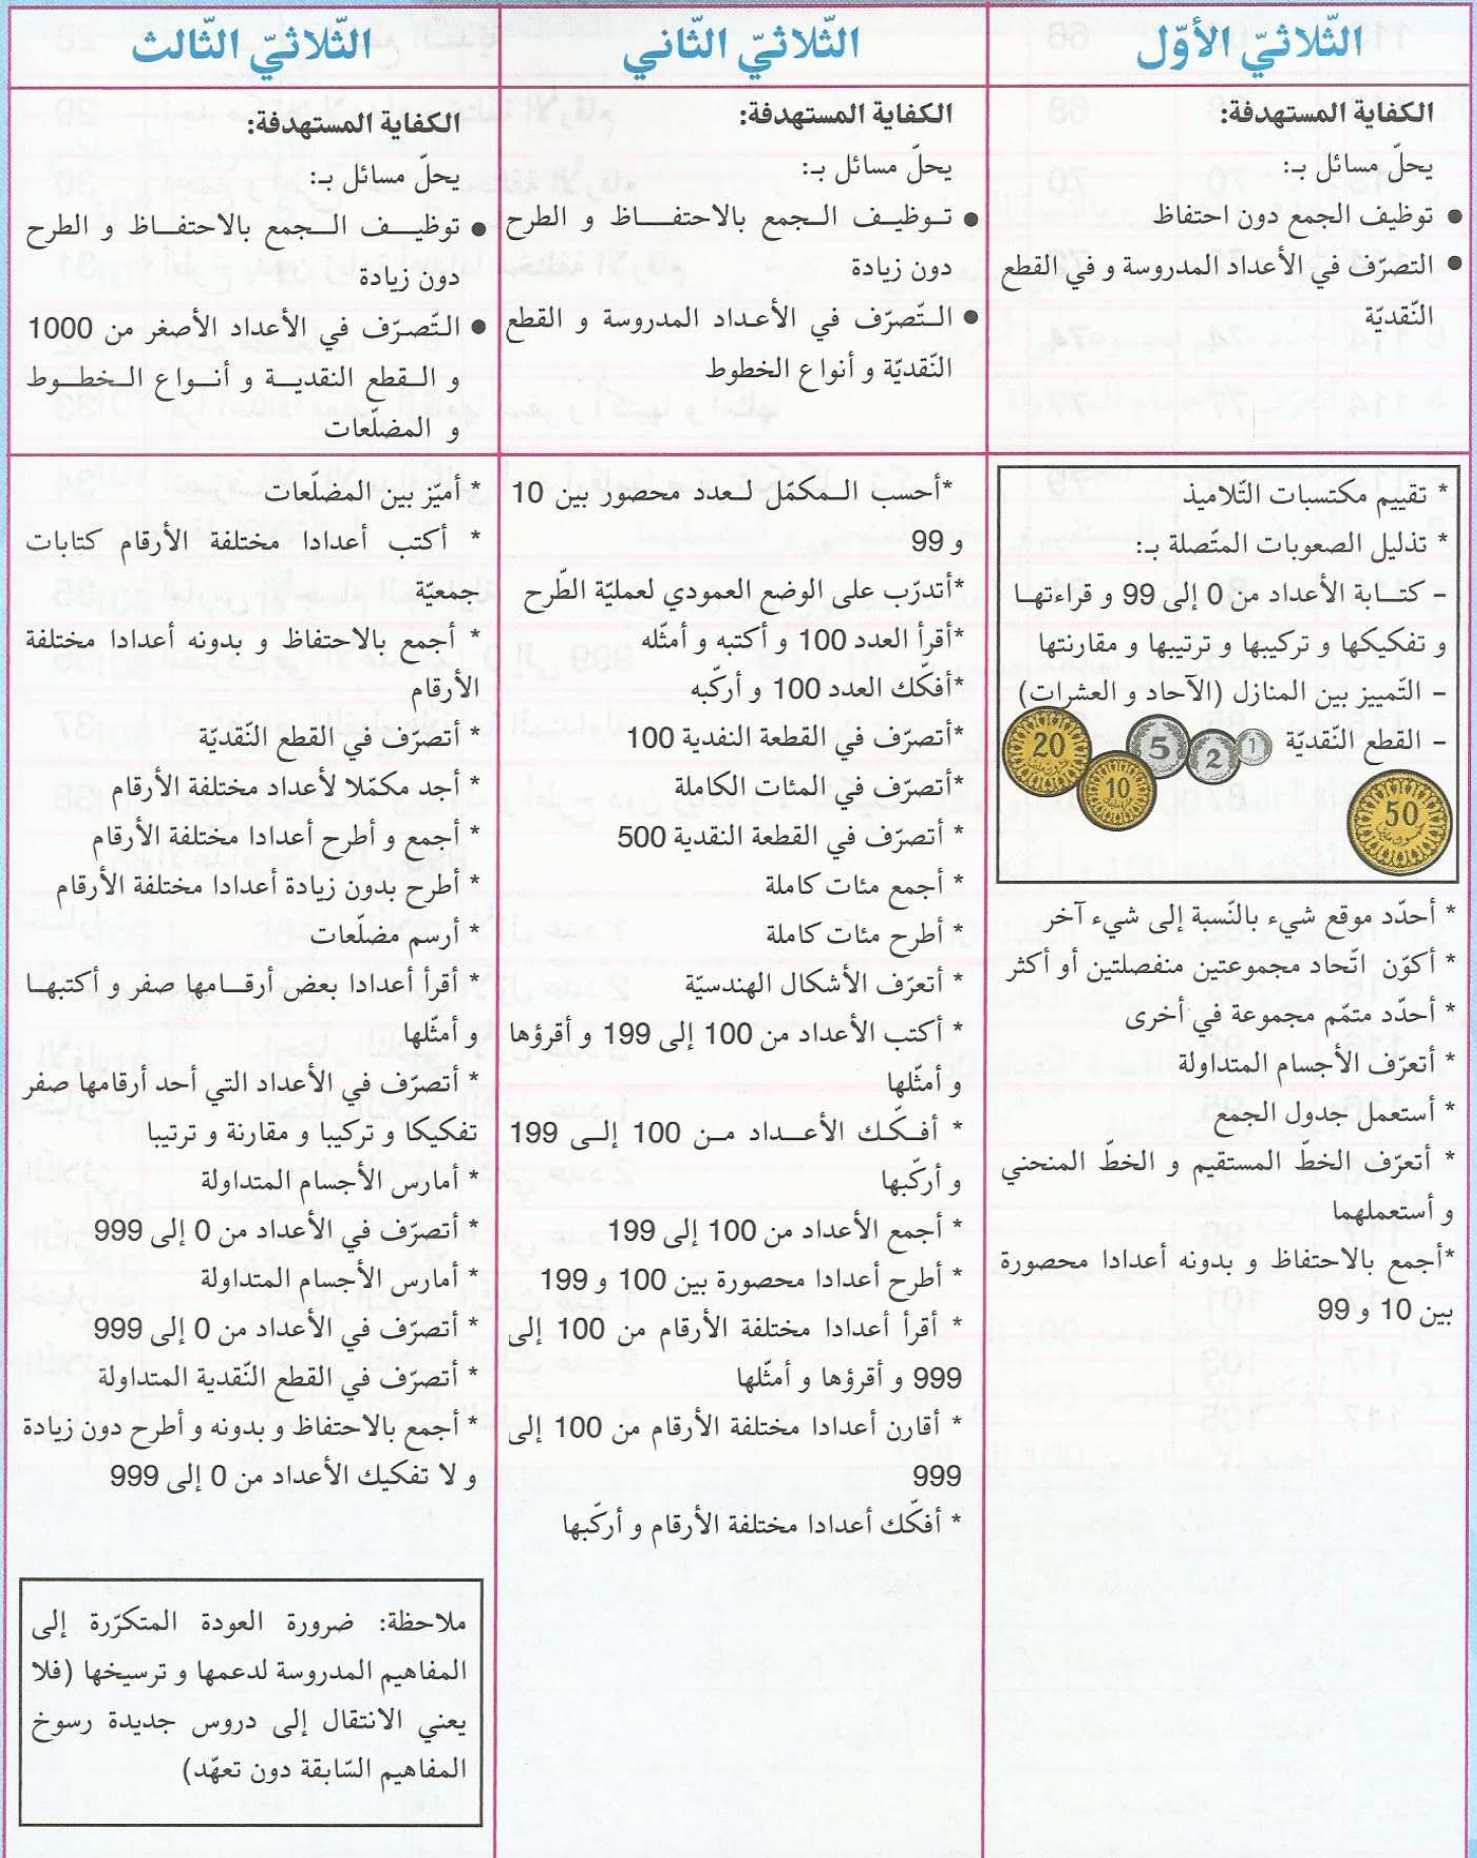 الثّلاثيّ الأوّل
الكفاية المستهدفة:
يحلّ مسائل بـ:
● توظيف الجمع دون احتفاظ
● التصرّف في الأعداد المدروسة و في القطع
النّقديّة
* تقييم مكتسبات التّلاميذ
* تذليل الصعوبات المتّصلة بـ:
- كتـابة الأعداد من 0 إلى 99 و قراءتهـا
و تفكيكها و تركيبها و ترتيبها و مقارنتها
- التّمييز بين المنازل (الآحاد و العشرات)
- القطع النّقديّة
20
10
5
2
1
50
* أحدّد موقع شيء بالنّسبة إلى شيء آخر
* أكوّن اتّحاد مجموعتين منفصلتين أو أكثر
* أحدّد متمّم مجموعة في أخرى
* أتعرّف الأجسام المتداولة
* أستعمل جدول الجمع
* أتعرّف الخطّ المستقيم و الخطّ المنحني
و أستعملهما
*أجمع بالاحتفاظ و بدونه أعدادا محصورة
بين 10 و 99
الثّلاثيّ الثّاني
الكفاية المستهدفة:
يحلّ مسائل بـ:
● تـوظيـف الـجمع بالاحتفـــاظ و الطرح
دون زيادة
● الـتّصرّف في الأعـداد المدروسة و القطع
النّقديّة و أنواع الخطوط
*أحسب الـمكمّل لـعدد محصور بين 10
و 99
*أتدرّب على الوضع العمودي لعمليّة الطّرح
*أقرأ العدد 100 و أكتبه و أمثّله
*أفكّك العدد 100 و أركّبه
*أتصرّف في القطعة النفدية 100
*أتصرّف في المئات الكاملة
* أتصرّف في القطعة النقدية 500
* أجمع مئات كاملة
* أطرح مئات كاملة
* أتعرّف الأشكال الهندسيّة
* أكتب الأعداد من 100 إلى 199 و أقرؤها
و أمثّلها
* أفـكّـك الأعـــداد مـن 100 إلـى 199
و أركّبها
* أجمع الأعداد من 100 إلى 199
* أطرح أعدادا محصورة بين 100 و 199
* أقرأ أعدادا مختلفة الأرقام من 100 إلى
999 و أقرؤها و أمثّلها
* أقارن أعدادا مختلفة الأرقام من 100 إلى
999
* أفكّك أعدادا مختلفة الأرقام و أركّبها
الثّلاثيّ الثّالث
الكفاية المستهدفة:
يحلّ مسائل بـ:
● توظيــف الــجمع بالاحتفــاظ و الطرح
دون زيادة
● الـتّصرّف في الأعداد الأصغر من 1000
و الـقطع النقديــة و أنــواع الـخطــوط
و المضلّعات
* أميّز بين المضلّعات
* أكتب أعدادا مختلفة الأرقام كتابات
جمعيّة
* أجمع بالاحتفاظ و بدونه أعدادا مختلفة
الأرقام
* أتصرّف في القطع النّقديّة
* أجد مكمّلا لأعداد مختلفة الأرقام
* أجمع و أطرح أعدادا مختلفة الأرقام
* أطرح بدون زيادة أعدادا مختلفة الأرقام
* أرسم مضلّعات
* أقرأ أعدادا بعض أرقــامها صفر و أكتبهـا
و أمثّلها
* أتصرّف في الأعداد التي أحد أرقامها صفر
تفكيكا و تركيبا و مقارنة و ترتيبا
* أمارس الأجسام المتداولة
* أتصرّف في الأعداد من 0 إلى 999
* أمارس الأجسام المتداولة
* أتصرّف في الأعداد من 0 إلى 999
* أتصرّف في القطع النّقدية المتداولة
* أجمع بالاحتفاظ و بدونه و أطرح دون زيادة
و لا تفكيك الأعداد من 0 إلى 999
ملاحظة: ضرورة العودة المتكرّرة إلى
المفاهيم المدروسة لدعمها و ترسيخها (فلا
يعني الانتقال إلى دروس جديدة رسوخ
المفاهيم السّابقة دون تعهّد)